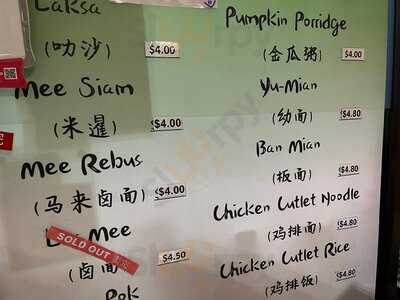 Laksa
(叻沙) $4.00
Mee Siam
(米暹) $4.00
Mee Rebus
(马来卤面) $4.00
Mee
SOLD OUT
(卤面) $4.50
Pok
Pumpkin Porridge
(金瓜粥) $4.00
Yu-Mian
(幼面) $4.80
Ban Mian
(板面) $4.80
Chicken Cutlet Noodle
(鸡排面) $4.80
Chicken Cutlet Rice
(鸡排饭) $4.80